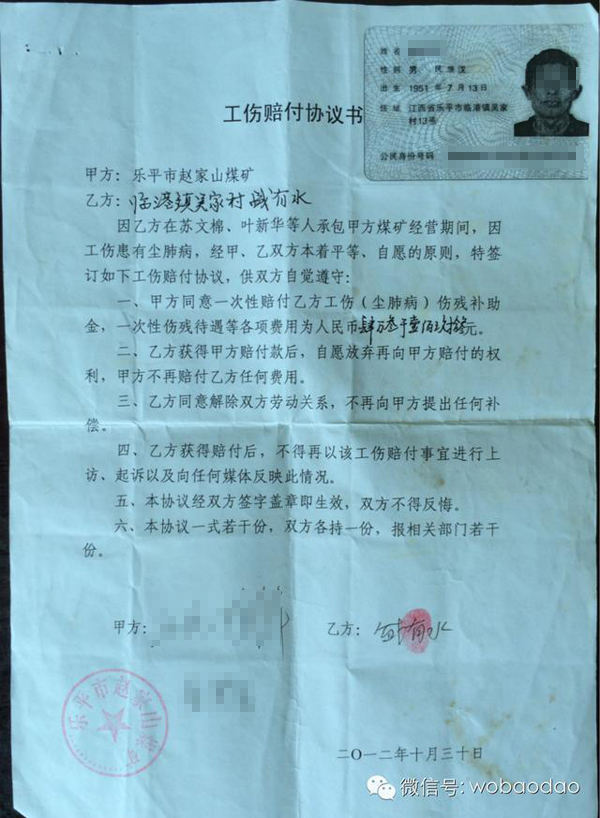 姓名
性别 男 民族 汉
出生 1951 年 7 月 13 日
住址 江西省乐平市临港镇吴家
村13号
公民身份号码
工伤赔付协议书
甲方：乐平市赵家山煤矿
乙方：临港镇吴家村 有水
因乙方在苏文棉、叶新华等人承包甲方煤矿经营期间，因
工伤患有尘肺病，经甲、乙双方本着平等、自愿的原则，特签
订如下工伤赔付协议，供双方自觉遵守：
一、甲方同意一次性赔付乙方工伤（尘肺病）伤残补助
金，一次性伤残待遇等各项费用为人民币肆万叁仟壹佰玖拾元。
二、乙方获得甲方赔付款后，自愿放弃再向甲方赔付的权
利，甲方不再赔付乙方任何费用。
三、乙方同意解除双方劳动关系，不再向甲方提出任何补
偿。
四、乙方获得赔付后，不得再以该工伤赔付事宜进行上
访、起诉以及向任何媒体反映此情况。
五、本协议经双方签字盖章即生效，双方不得反悔。
六、本协议一式若干份，双方各持一份，报相关部门若干
份。
甲方：
乙方： 有水
乐平市赵家山煤矿
二〇一二年十月三十日
微信号: wobaodao